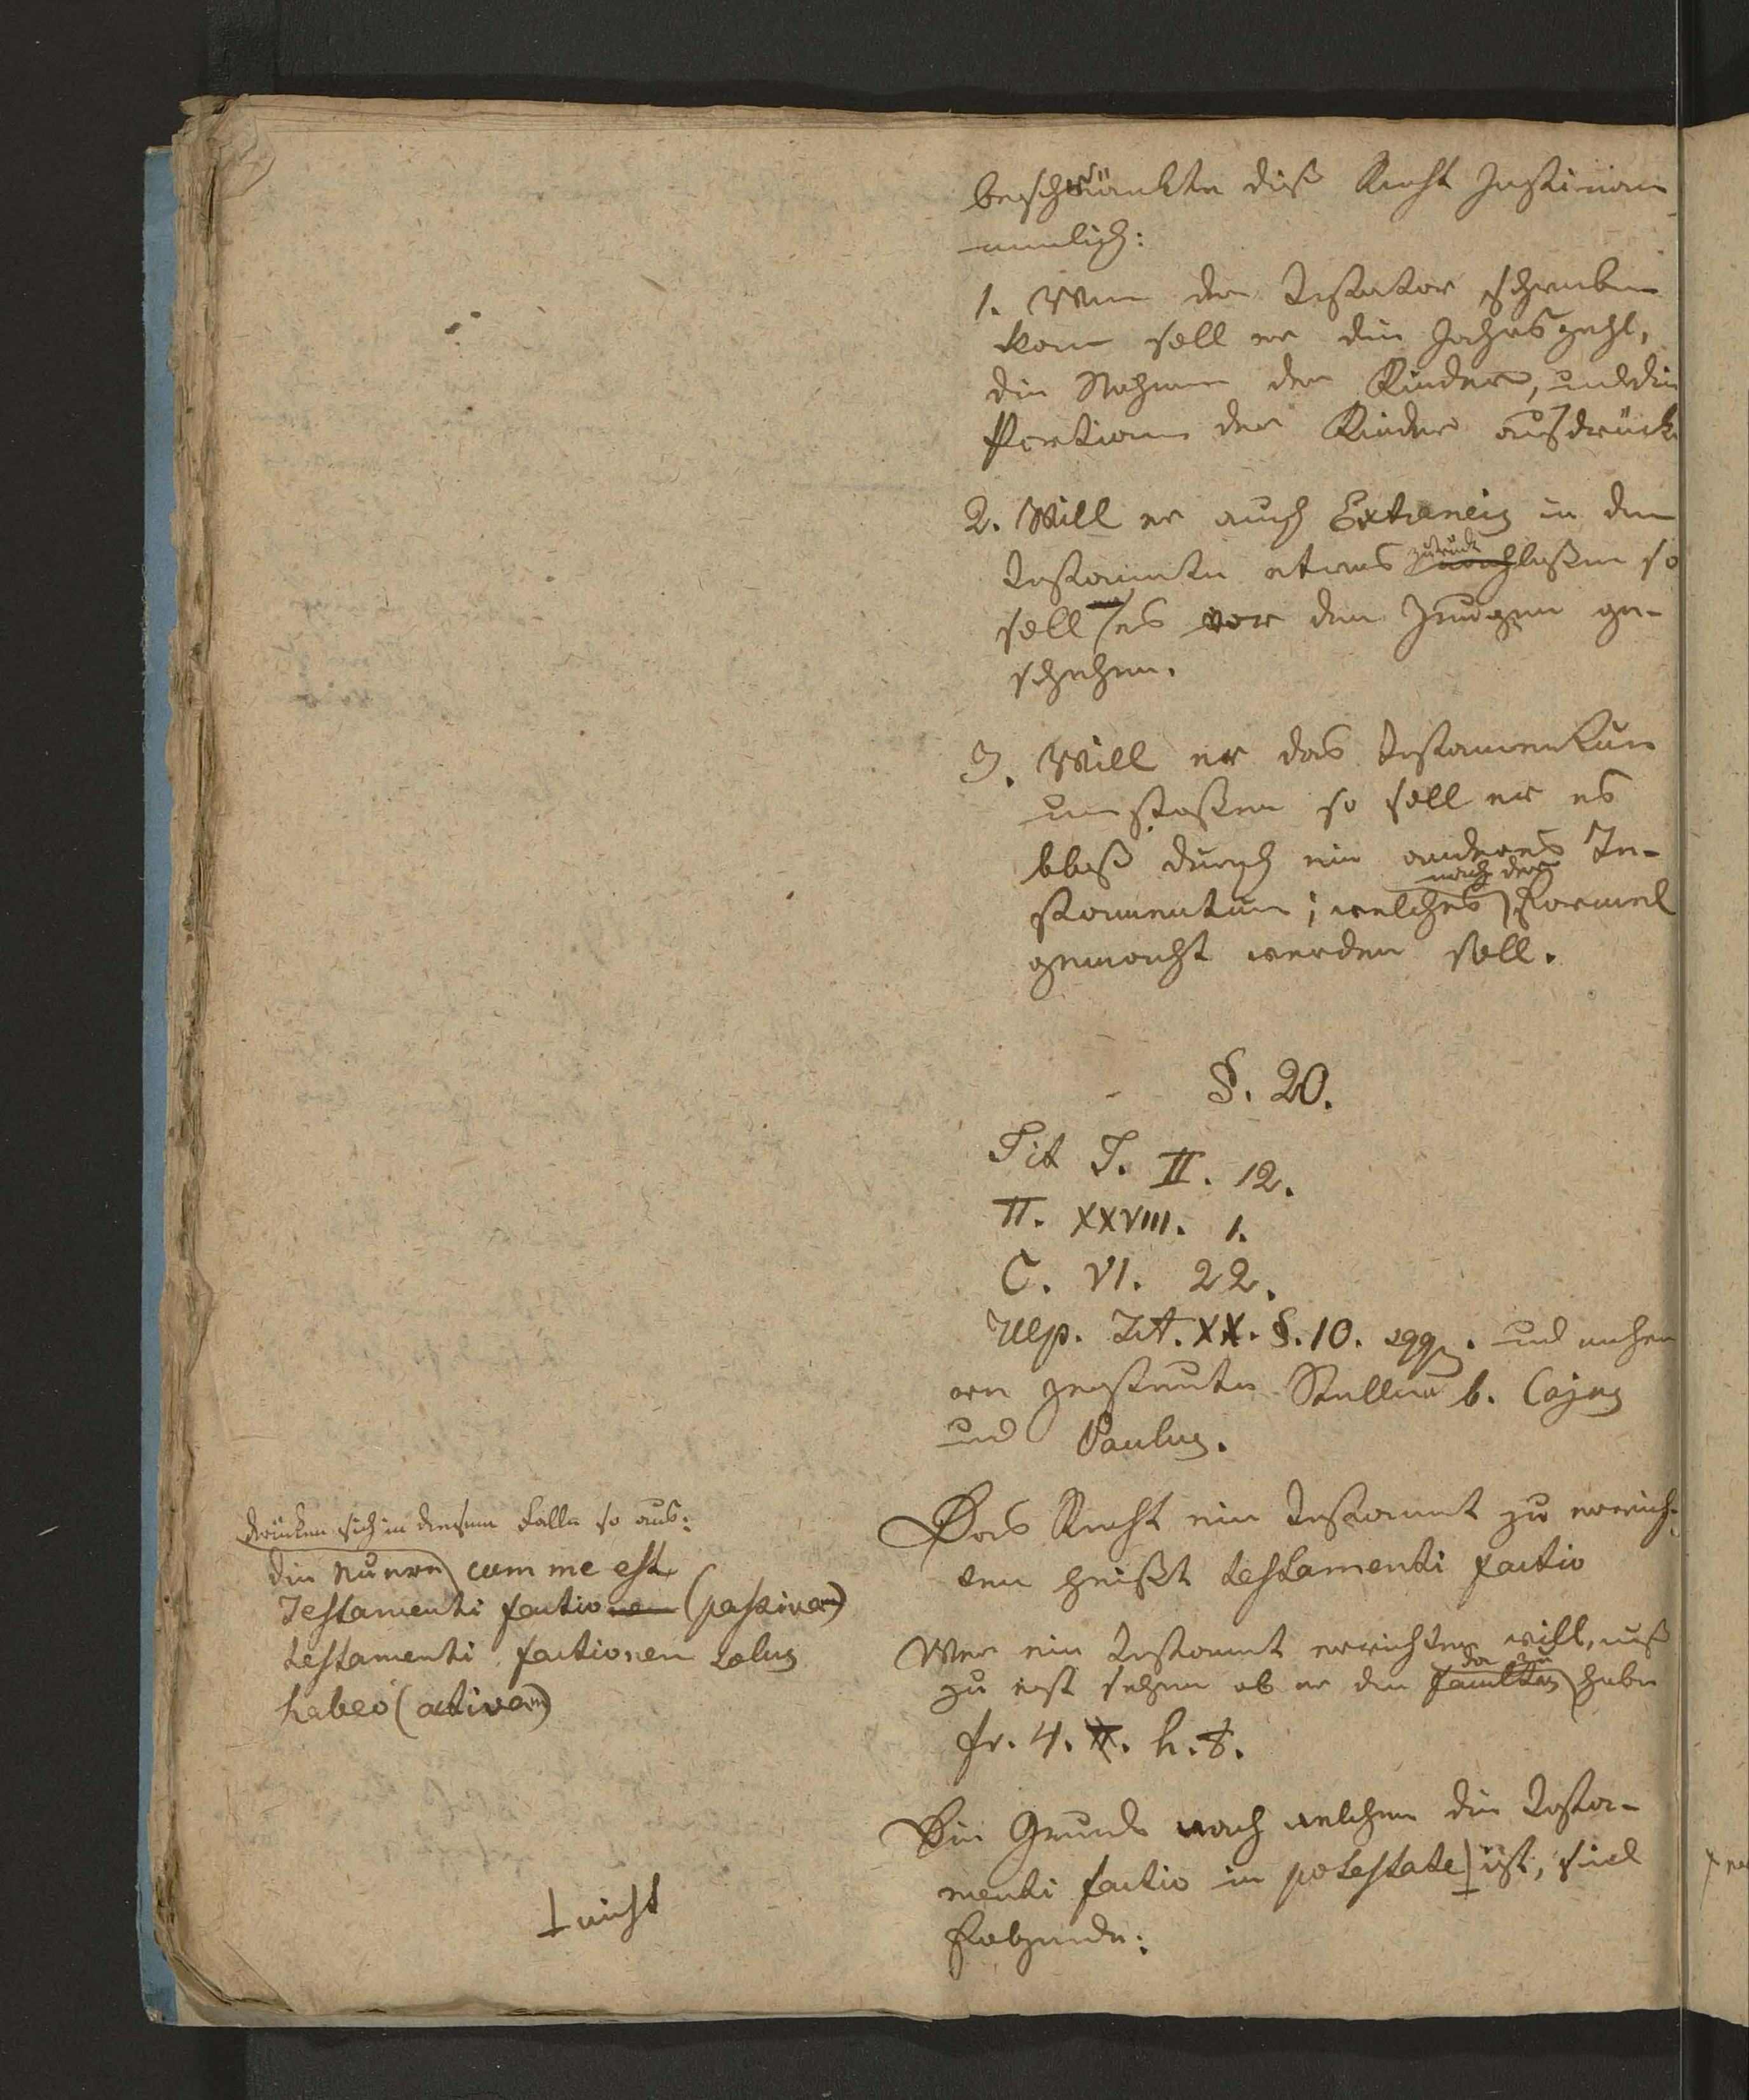 beschränkte diß Recht Justinian
nemlich:
1. Wenn der Testator schreiben
kann soll er die Jahrszahl,
die Nahmen der Kinder, und die
Portion der Kinder ausdrück
2. Will er auch Extraneis in dem
Testamente etwas zurück nachlaßen so
soll es vor den Zeugen ge-
schehen.
3. Will er das Testamentum
umstoßen so soll er es
bloß durch ein anderes Te-
stamentum; welches nach der Formel
gemacht werden soll.
§. 20.
Tit J. II. 12.
π. XXVIII. 1.
C. VI. 22.
Ulp. Tit. XX. §. 10. sqq. und
zerstreute Stellen b. Cajus
und Paulus.
Das Recht ein Testament zu errich-
ten heißt testamenti factio
Wer ein Testament errichten will, muß
zu erst sehen ob er die facultas dazu habe
fr. 4. π. h. t.
Die Gründe nach welchen die Testa-
menti factio in potestate ist, sind
Folgende:
drücken sich in diesem Falle so aus:
die Neuern cum me est
Testamenti factionem (passivam)
testamenti factionem solus
habeo (activam)
nicht